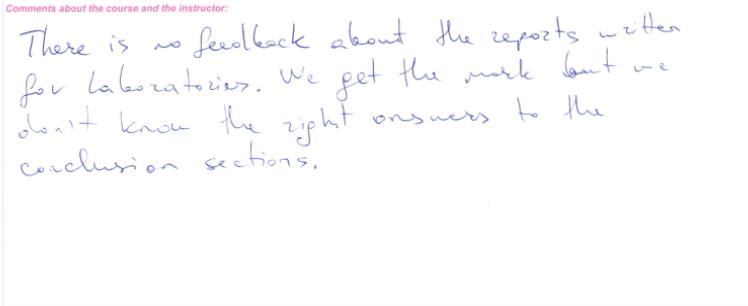 Comments about the course and the instructor:
There is no feedback about the reports written
for laboratories. We get the mark but we
don't know the right answers to the
conclusion sections.